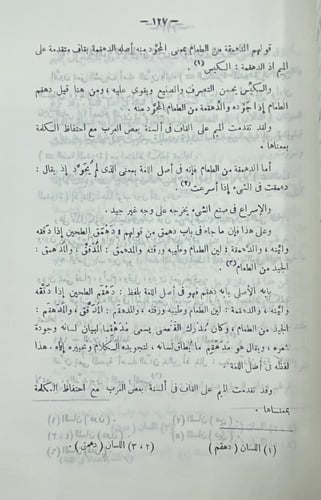 — ١٢٧ —
قولهم الدهمقة من الطعام بمعنى المجوّد منه أصله الدهقمة بقاف متقدمة على
الميم إذ الدهقمة : الكَيْس (١) .
والكيِّس يحسن التصرف والصنيع ويقوى عليه ، ومن هنا قيل دهقم
الطعام إذا جوّده والدّهقمة من الطعام المجوّد منه .
ولقد تقدمت الميم على القاف في ألسنة بعض العرب مع احتفاظ الكلمة
بمعناها .
أما الدهمقة من الطعام فإنه في أصل اللغة بمعنى الذي لم يجوّد إذ يقال :
دهمقت في الشيء إذا أسرعت (٢) .
والإسراع في صنع الشيء يخرجه على وجه غير جيد .
وعلى هذا فإن ما جاء في باب دهمق من قولهم : دَهْمَقَ الطحين إذا دققه
وليّنه ، والدهمقة : لين الطعام وطيبه ورقته والمدهمق : المُدَقّق ، والمُدَهْمَق :
الجيد من الطعام (٣) .
بابه الأصلي بابه دهقم فهو في أصل اللغة بلفظ : دَهْقَمَ الطحين إذا دَقَّقه
وليّنه ، والدهقمة : لين الطعام وطيبه ورقته ، والمدهقم : المُدَقَّق ، والمدهقَم :
الجيد من الطعام ، وكان مُدْرك الفقعسى يسمى مدهقما لبيان لسانه وجودة
شعره ، ويقال هو مُدَهْقِم ما يطاق لسانه ، لتجويده الكلام وتحبيره إياه . هذا
لفظه في أصل اللغة .
وقد تقدمت الميم على القاف في ألسنة بعض العرب مع احتفاظ الكلمة
بمعناها .
(١) اللسان (دهقم) .
(٢ ، ٣) اللسان (دهمق) .